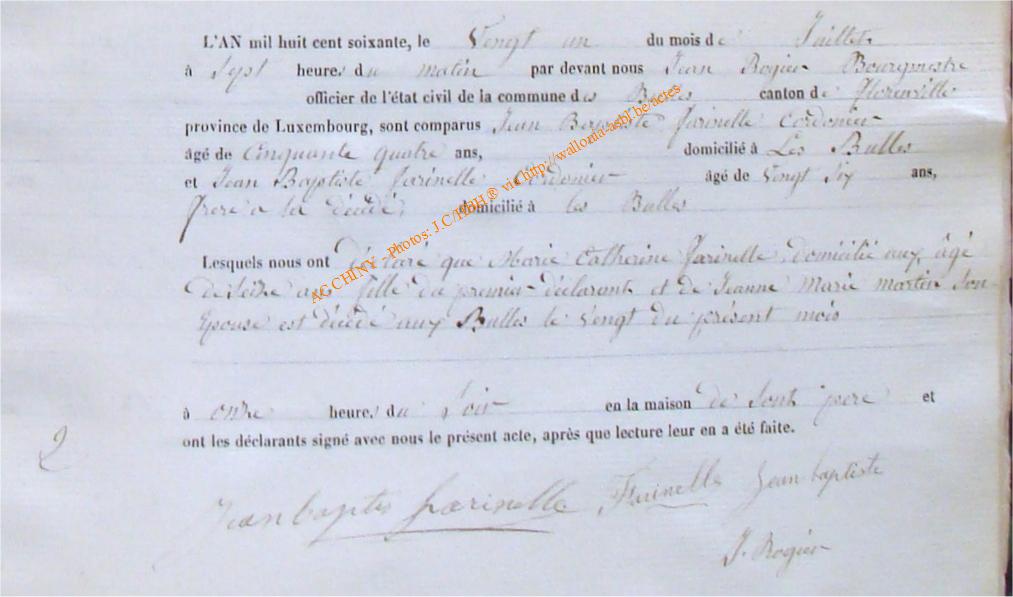 L'AN mil huit cent soixante, le Vingt un du mois de Juillet
à Sept heures du matin par devant nous Jean Rogier Bourgmestre
officier de l'état civil de la commune des Bulles canton de Florenville
province de Luxembourg, sont comparus Jean Farinelle Cordonier
âgé de Cinquante quatre ans, domicilié à Les Bulles
et Jean Baptiste Farinelle Cordonier âgé de Vingt Six ans,
frere a la décédé, domicilié à les Bulles
Lesquels nous ont déclaré que Marie Catherine Farinelle domicilié aux âgé
de seize ans fille du premier déclarant et de Jeanne Marie martin Son
Epouse est décédé aux Bulles le Vingt du présent mois
à onze heures du Soir en la maison de Sont pere et
ont les déclarants signé avec nous le présent acte, après que lecture leur en a été faite.
2
Jean baptis farinelle Farinelle Jean baptiste
J. Rogier
AC CHINY - Photos: J.C/HBH® via http://wallonia-asbl.be/actes